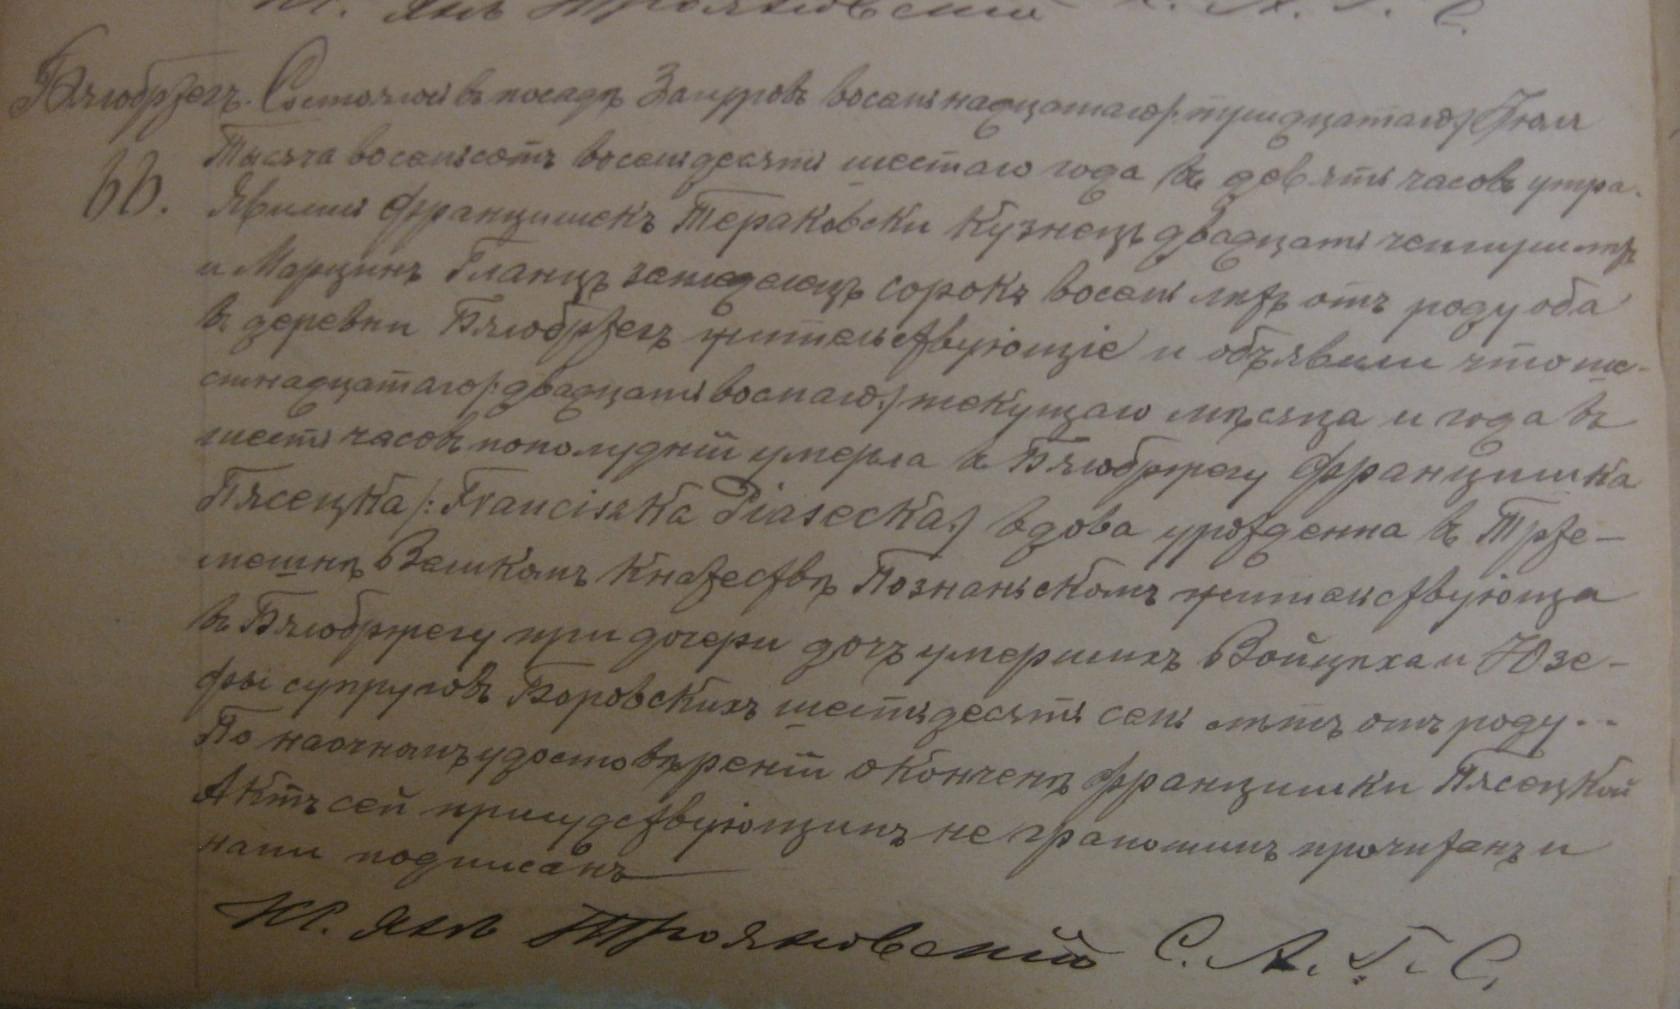 Кс. Янъ Трояновскій С. А. Г. С.
Бялобржегъ. Состоялось въ посадѣ Загуровъ восемнадцатаго /: тридцатаго :/ Іюля
66. Тысяча восемьсотъ восемдесятъ шестаго года въ девять часовъ утра.
Явились Францишекъ Тераковски Кузнецъ двадцать четыри лѣтъ
и Марцинъ Гланцъ земледелецъ сорокъ восемь лѣтъ отъ роду оба
въ деревни Бялобржегъ жительствующіе и объявили что ше-
стнадцатаго /: двадцать восмаго :/ текущаго мѣсяца и года въ
шесть часовъ пополудніи умерла въ Бялобржегу Францишка
Пясецка /: Franciszka Piasecka :/ вдова урожденна въ Трже-
мешнѣ Великомъ Княжествѣ Познаньскомъ жительствующа
въ Бялобржегу при дочери дочъ умершихъ Войцѣха и Юзе-
фы супруговъ Боровскихъ шестьдесятъ семь лѣтъ отъ роду..
По наочномъ удостовѣреніи о кончинѣ Францишки Пясецкой
Актъ сей присудствующимъ не грамотымъ прочитанъ и
нами подписанъ
Кс. Янъ Трояновскій С. А. Г. С.